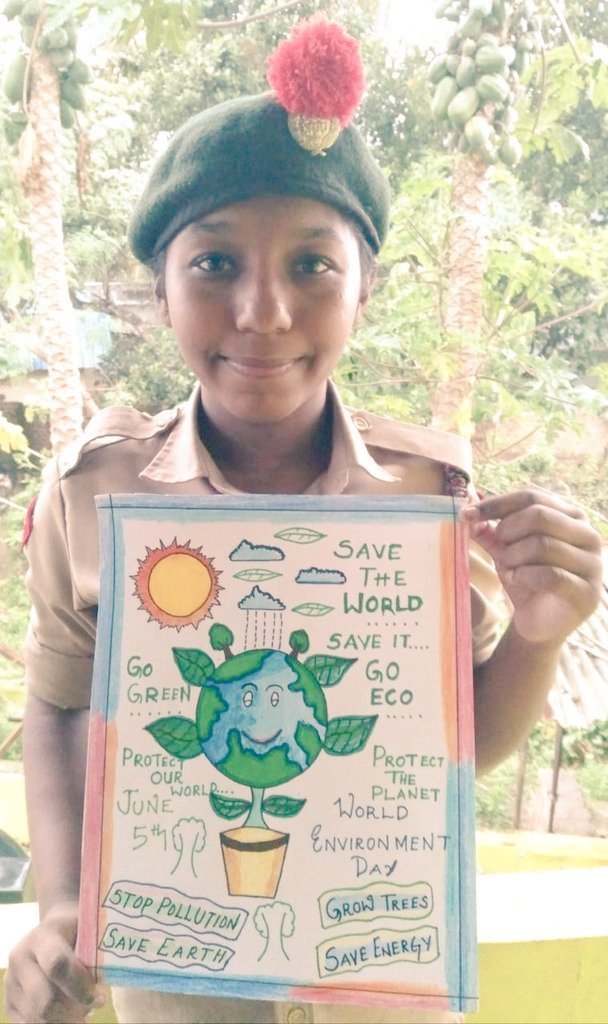 SAVE
THE
WORLD
SAVE IT....
GO
GREEN
GO
ECO
PROTECT
OUR
WORLD....
JUNE
5th
PROTECT
THE
PLANET
WORLD
ENVIRONMENT
DAY
STOP POLLUTION
SAVE EARTH
GROW TREES
SAVE ENERGY